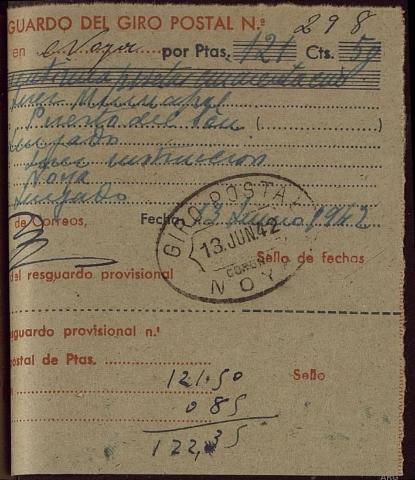 GUARDO DEL GIRO POSTAL N.º 298
en Noya por Ptas. 121 Cts. 50
Juez Municipal
Puerto del Son (
Juzgado
Juez instruccion
Noya
Juzgado
de Correos, Fecha 13 Junio 1942
GIRO POSTAL
13 JUN. 42
CORUÑA
NOYA
del resguardo provisional Sello de fechas
sguardo provisional n.º
postal de Ptas.
121.50 Sello
0 85
122,35